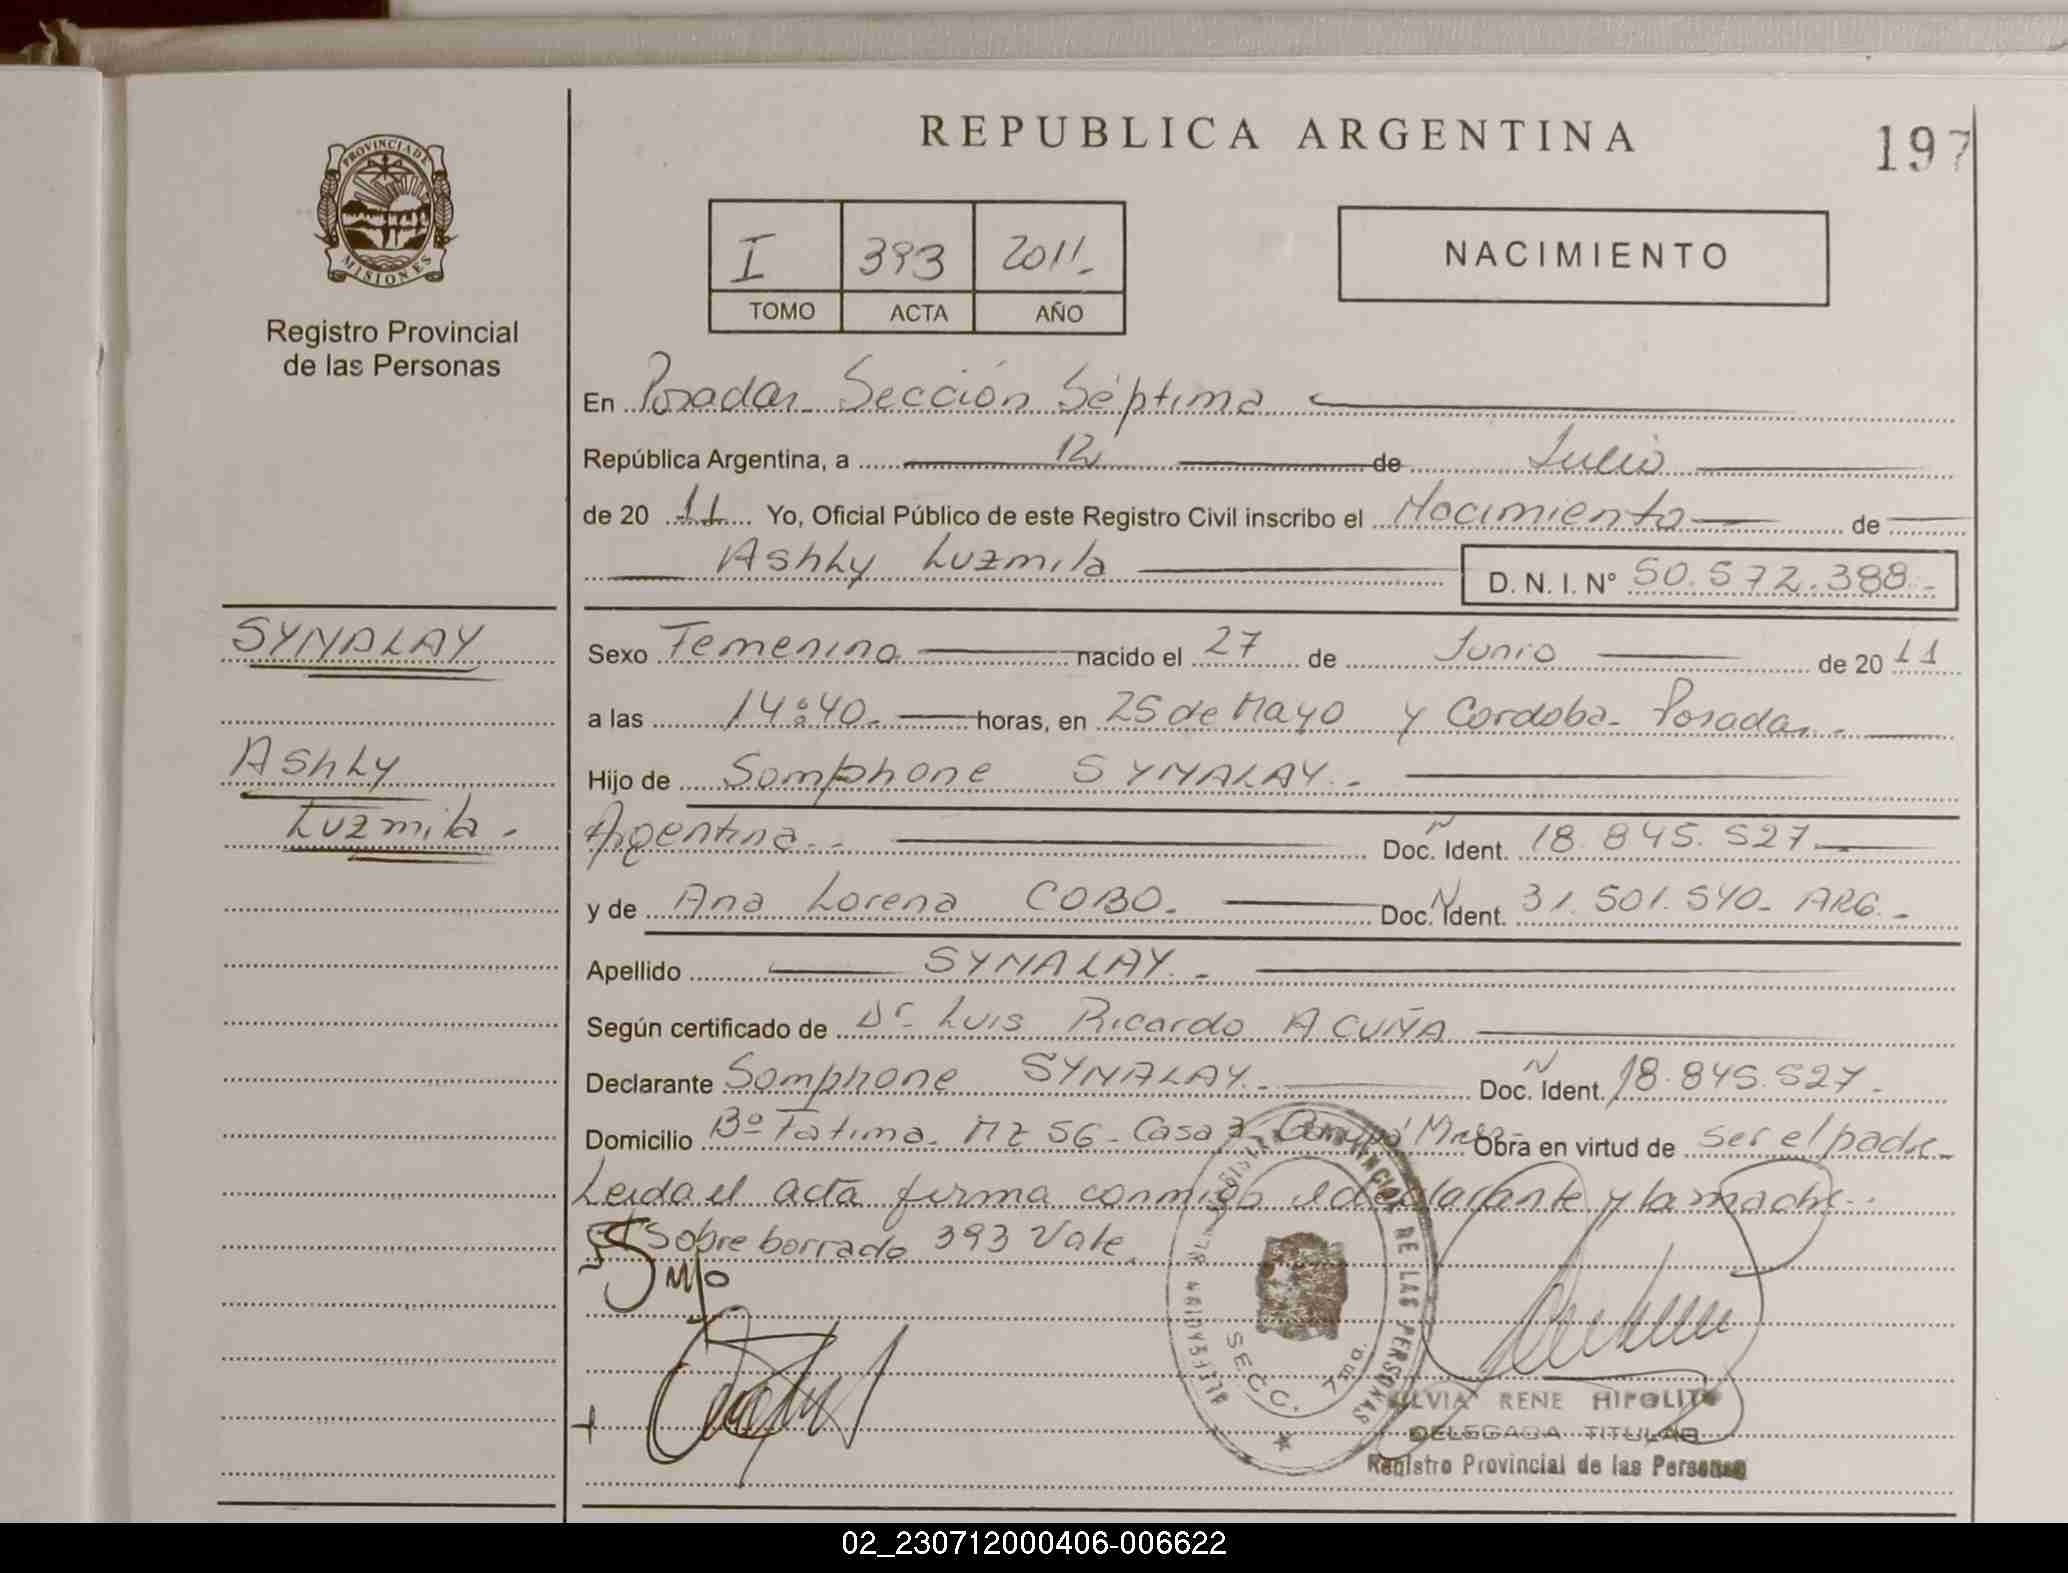 REPUBLICA ARGENTINA
197
PROVINCIA DE
MISIONES
Registro Provincial
de las Personas
I 393 2011.-
TOMO ACTA AÑO
NACIMIENTO
En Posadas Sección Séptima
República Argentina, a 12 de Julio
de 20 11 Yo, Oficial Público de este Registro Civil inscribo el Nacimiento de
Ashly Luzmila D. N. I. N° 50.572.388.-
SYNALAY
Ashly
Luzmila.
Sexo Femenino nacido el 27 de Junio de 20 11
a las 14:40.- horas, en 25 de Mayo y Cordoba- Posadas.-
Hijo de Somphone SYNALAY.-
Argentina.- Doc. N Ident. 18.845.527
y de Ana Lorena COBO. Doc. N Ident. 31.501.540- ARG.-
Apellido SYNALAY.-
Según certificado de Dr. Luis Ricardo ACUÑA
Declarante Somphone SYNALAY.- Doc. N Ident. 18.845.527.-
Domicilio Bº Fatima- MZ 56- Casa Garupá Mnes.- Obra en virtud de ser el padre-
Leida el acta firma conmigo el declarante y la madre.-
Sobre borrado 393 Vale
REGISTRO PROVINCIAL DE LAS PERSONAS
SECC. 7ma.
SILVIA RENE HIPOLITO
DELEGADA TITULAR
Registro Provincial de las Personas
02_230712000406-006622